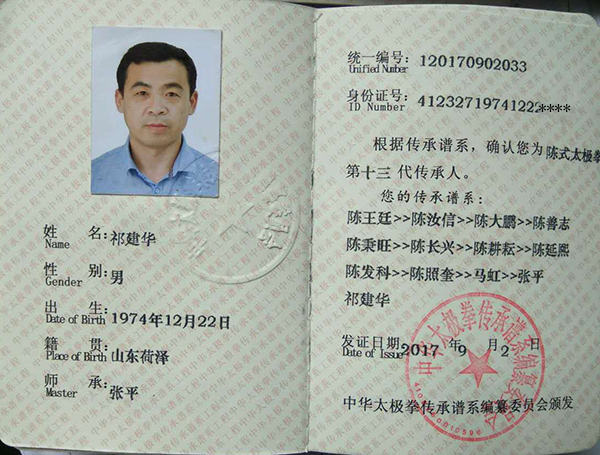 姓 名: 祁建华
Name
性 别: 男
Gender
出 生: 1974年12月22日
Date of Birth
籍 贯: 山东荷泽
Place of Birth
师 承: 张平
Master
统一编号: 120170902033
Unified Number
身份证号: 41232719741222****
ID Number
根据传承谱系，确认您为 陈式太极拳
第十三 代传承人。
您的传承谱系：
陈王廷>>陈汝信>>陈大鹏>>陈善志
陈秉旺>>陈长兴>>陈耕耘>>陈延熙
陈发科>>陈照奎>>马虹>>张平
祁建华
发证日期: 2017 年 9 月 2 日
Date of Issue
中华太极拳传承谱系编纂委员会颁发
中华太极拳传承谱系编纂委员会